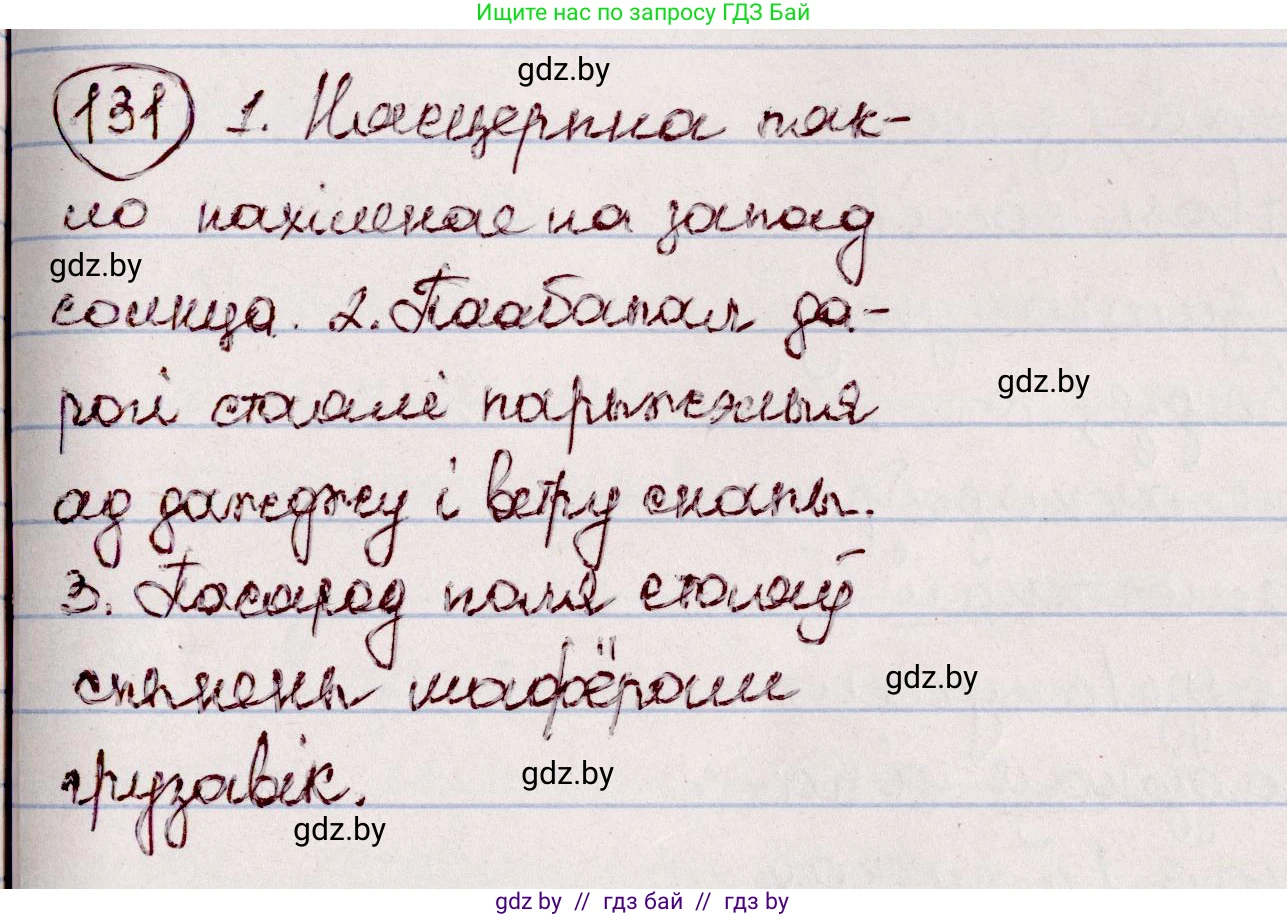 Ищите нас по запросу ГДЗ Бай
gdz.by
131 1. Нясцерпна пяк-
ло нахіленае на захад
gdz.by
сонца. 2. Паабапал да-
рогі стаялі парыжэлыя
gdz.by
ад дажджу і ветру снапы.
3. Пасярод поля стаяў
спынены шафёрам
gdz.by
грузавік.
gdz.by
gdz.by
gdz.by // гдз бай // гдз by